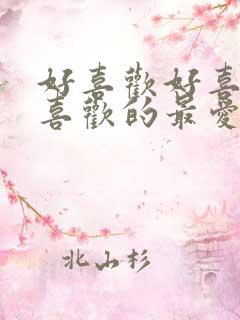 好喜歡好喜
喜歡的最愛
北山杉